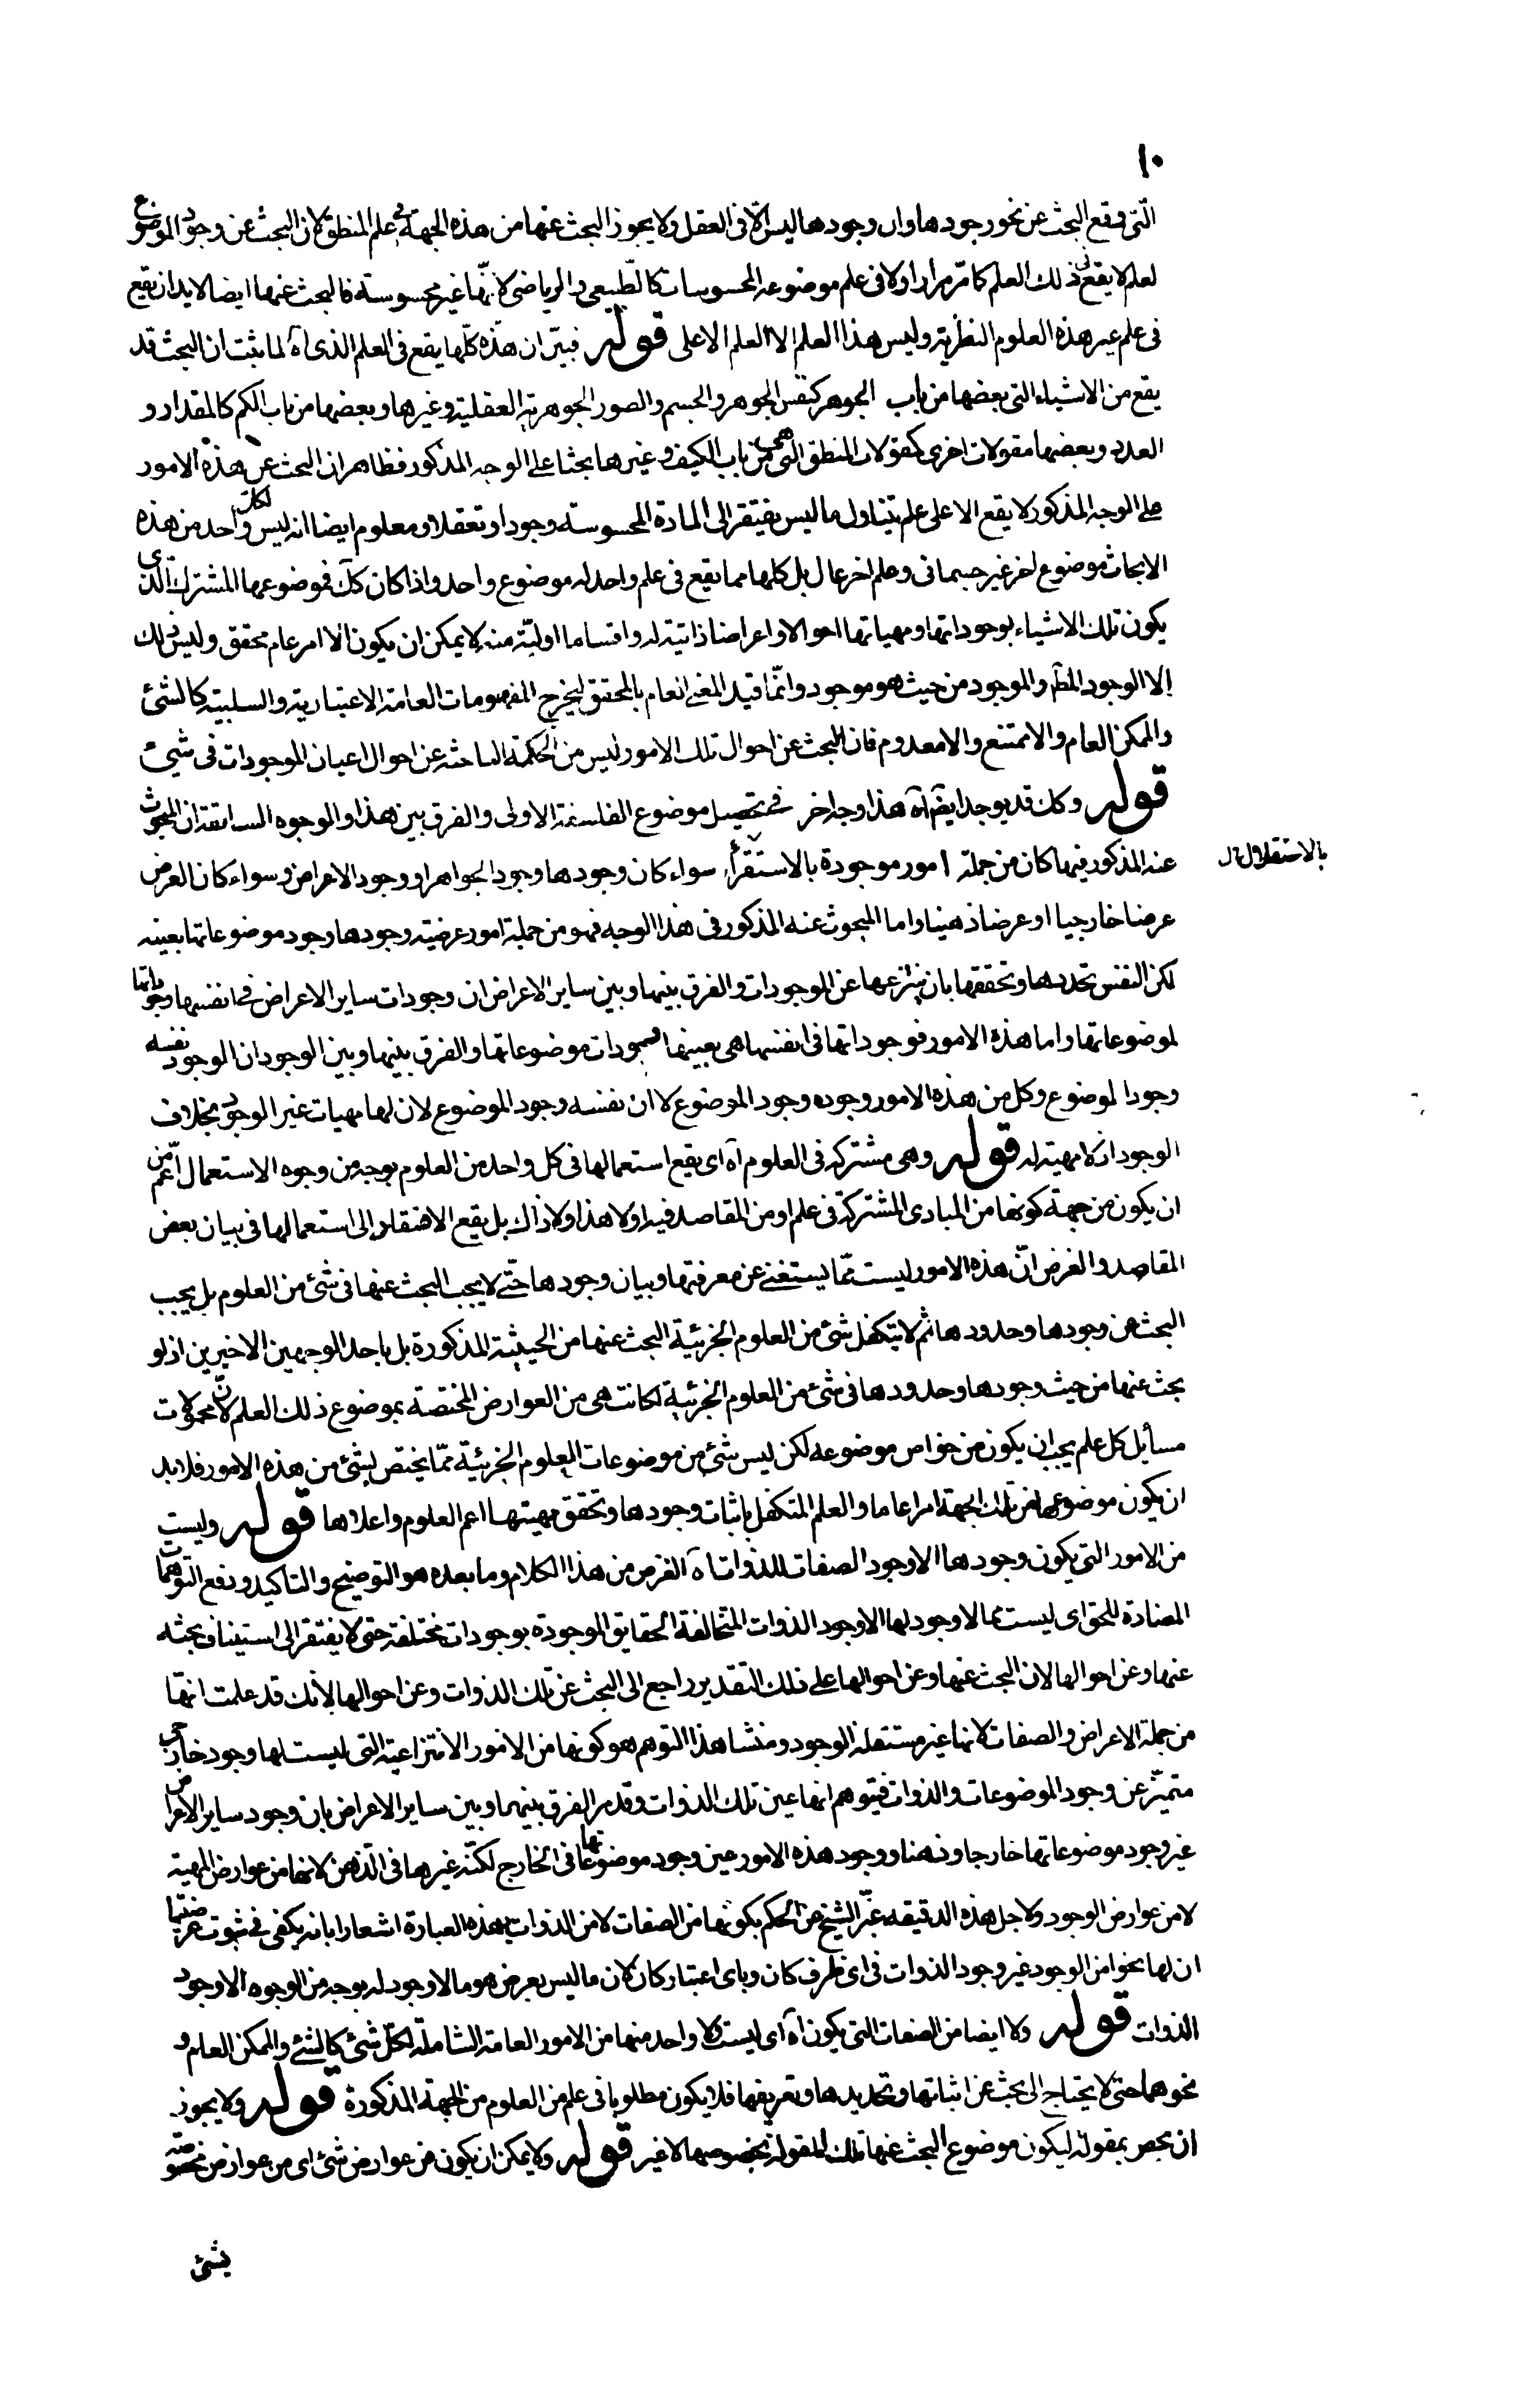 ١٠
الّتى وقع البحث عن نحو وجودها وان وجودها ليس الّا فى العقل ولا يجوز البحث عنها من هذه الجهة فى علم المنطق لان البحث عن وجود الموضوع
لعلم لا يقع فى ذلك العلم كما مّر مرارا ولا فى علم موضوعه المحسوسات كالطّبيعى والرياضى لانّها غير محسوسة فالبحث عنها ايضا لابد ان يقع
فى علم غير هذه العلوم النظرية وليس هذا العلم الا العلم الاعلى قوله فبيّن ان هذه كلّها يقع فى العلم الذى آه لما يثبت ان البحث قد
يقع من الاشياء التى بعضها من باب الجوهر كنفس الجوهر والجسم والصور الجوهرية العقلية وغيرها وبعضها من باب الكم كالمقدار و
العدد وبعضها مقولات اخرى كمقولات المنطق التى هى من باب الكيف وغيرها بحثا على الوجه المذكور فظاهر ان البحث عن هذه الامور
على الوجه المذكور لا يقع الا على علم يتناول ما ليس يفتقر الى المادة المحسوسة وجودا وتعقلا ومعلوم ايضا انه ليس لكل واحد من هذه
الابحاث موضوع اخر غير جسمانى وعلم اخر عال بل كلها مما يقع فى علم واحد له موضوع واحد واذا كان كك فموضوعها المشترك الذى
يكون تلك الاشياء بوجوداتها ومهياتها احوالا واعراضا ذاتية له واقساما اوليّة منه لا يمكن ان يكون الا امر عام محقق وليس ذلك
الا الوجود المطلق والموجود من حيث هو موجود وانّما قيد المعنى العام بالمحقق ليخرج المفهومات العامة الاعتبارية والسلبية كالشئ
والممكن العام والاممتنع والامعدوم فان البحث عن احوال تلك الامور ليس من الحكمة الباحثة عن احوال اعيان الموجودات فى شئ
قوله وكك قد يوجد ايضا آه هذا وجه اخر فى تحصيل موضوع الفلسفة الاولى والفرق بين هذا والوجوه السابقة ان المبحوث
عنه المذكور فيها كان من جملة امور موجودة بالاستقرأ سواء كان وجودها وجود الجواهر او وجود الاعراض وسواء كان العرض
بالاستقلال
عرضا خارجيا او عرضا ذهنيا واما المبحوث عنه المذكور فى هذا الوجه فهو من جملة امور عرضية وجودها وجود موضوعاتها بعينه
لكن النفس تحددها وتحققها بان ينتزعها عن الموجودات والفرق بينها وبين ساير الاعراض ان وجودات ساير الاعراض فى انفسها وجوداتها
لموضوعاتها واما هذه الامور فوجوداتها فى انفسها هى بعينها وجودات موضوعاتها والفرق بينها وبين الوجود ان الوجود نفسه
وجود الموضوع وكل من هذه الامور وجوده وجود الموضوع لا ان نفسه وجود الموضوع لان لها مهيات غير الوجود بخلاف
الوجود اذ لا مهية له قوله وهى مشتركة فى العلوم آه اى يقع استعمالها فى كل واحد من العلوم بوجه من وجوه الاستعمال اعّم من
ان يكون من جهة كونها من المبادى المشتركة فى علم او من المقاصد فيه او لا هذا ولا ذاك بل يقع الافتقار الى استعمالها فى بيان بعض
المقاصد والغرض انّ هذه الامور ليست ممّا يستغنى عن معرفتها وبيان وجودها حتّى لا يجب البحث عنها فى شئ من العلوم بل يجب
البحث عن وجودها وحدودها ثم لا يتكفل شئ من العلوم الجزئية البحث عنها من الحيثية المذكورة بل باحد الوجهين الاخيرين اذ لو
بحث عنها من حيث وجودها وحدودها فى شئ من العلوم الجزئية لكانت هى من العوارض المختصة بموضوع ذلك العلم لانّ محمولات
مسائل كل علم يجب ان يكون من خواص موضوعه لكن ليس شئ من موضوعات العلوم الجزئيّة ممّا يختص بشئ من هذه الامور فلابد
ان يكون موضوعها من تلك الجهة امرا عاما والعلم المتكفل باثبات وجودها وتحقق مهيتها اعم العلوم واعلاها قوله وليست
من الامور التى يكون وجودها الا وجود الصفات للذوات آه الغرض من هذا الكلام وما بعده هو التوضيح والتاكيد ودفع التوهمات
المضادة للحق اى ليست مما لا وجود لها الا وجود الذوات المتخالفة الحقايق الموجودة بوجودات مختلفة حتى لا يفتقر الى استيناف بحثه
عنها وعن احوالها لان البحث عنها وعن احوالها على ذلك التقدير راجع الى البحث عن تلك الذوات وعن احوالها لانك قد علمت انها
من جملة الاعراض والصفات لانها غير مستقلة الوجود ومنشا هذا التوهم هو كونها من الامور الانتزاعية التى ليست لها وجود خارجى
متميّز عن وجود الموضوعات والذوات فيتوهم انها عين تلك الذوات وقد مر الفرق بينهما وبين ساير الاعراض بان وجود ساير الاعراض
غير وجود موضوعاتها خارجا وذهنا ووجود هذه الامور عين وجود موضوعاتها فى الخارج لكنّه غيرها فى الذهن لانها من عوارض المهية
لا من عوارض الوجود ولاجل هذه الدقيقه عبّر الشيخ عن الحكم بكونها من الصفات لا من الذوات بهذه العبارة اشعارا بانه يكفى فى ثبوت عرضيتها
ان لها نحوا من الوجود غير وجود الذوات فى اى ظرف كان وباى اعتبار كان لان ما ليس بعرض هو ما لا وجود له بوجه من الوجوه الا وجود
الذوات قوله ولا ايضا من الصفات التى يكون آه اى ليست ولا واحد منها من الامور العامة الشاملة لكلّ شئ كالشئ والممكن العام و
نحوهما حتى لا يحتاج الى بحث عن اثباتها وتحديدها وتعريفها فلا يكون مطلوبا فى علم من العلوم من الجهة المذكورة قوله ولا يجوز
ان يختص بمقولة ليكون موضوع البحث عنها تلك المقولة بخصوصها لا غير قوله ولا يمكن ان يكون من عوارض شئ اى من عوارض مخصوصة
بشئ